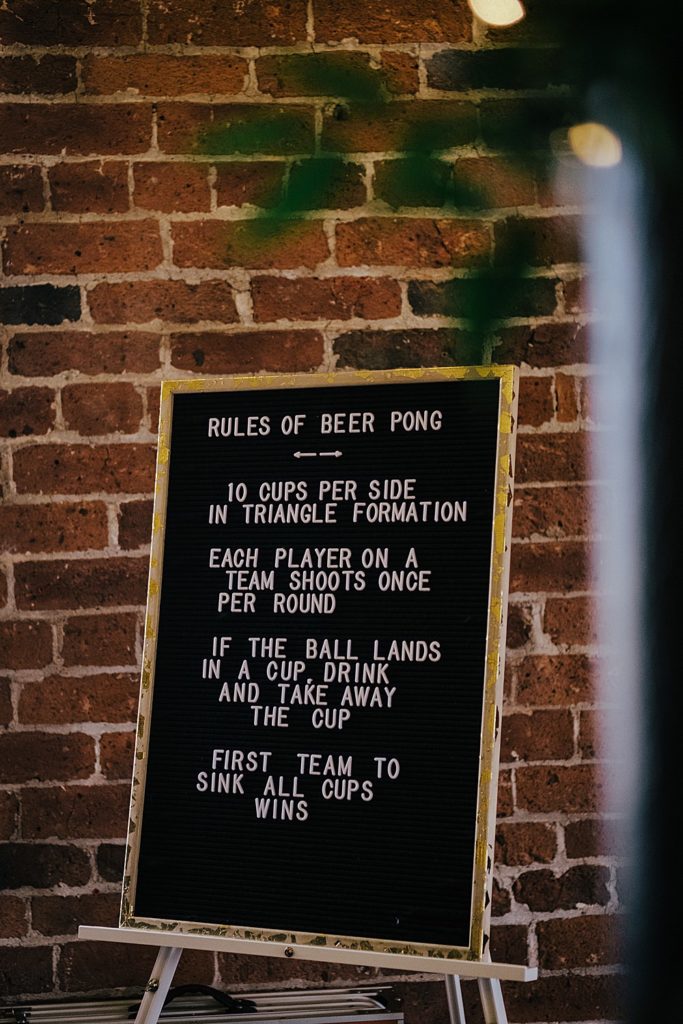 RULES OF BEER PONG
←→
10 CUPS PER SIDE
IN TRIANGLE FORMATION
EACH PLAYER ON A
TEAM SHOOTS ONCE
PER ROUND
IF THE BALL LANDS
IN A CUP, DRINK
AND TAKE AWAY
THE CUP
FIRST TEAM TO
SINK ALL CUPS
WINS